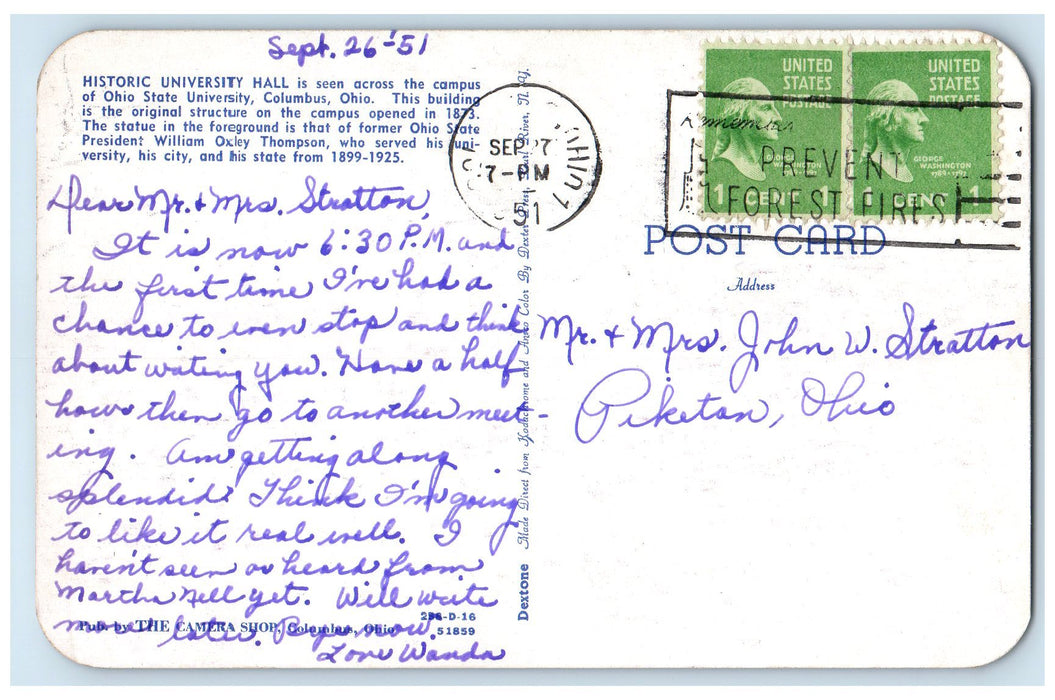 Sept. 26-'51
HISTORIC UNIVERSITY HALL is seen across the campus
of Ohio State University, Columbus, Ohio. This building
is the original structure on the campus opened in 1873.
The statue in the foreground is that of former Ohio State
President William Oxley Thompson, who served his uni-
versity, his city, and his state from 1899-1925.
Dear Mr. + Mrs. Stratton,
It is now 6:30 P.M. and
the first time I've had a
chance to even stop and think
about writing you. Have a half
hour then go to another meet-
ing. Am getting along
splendid. Think I'm going
to like it real well. I
haven't seen or heard from
Martha Nell yet. Will write
more later. Bye now.
Love Wanda
Pub. by THE CAMERA SHOP, Columbus, Ohio
51859
Dextone Made Direct from Kodachrome and Ansco Color By Dexter Press, Pearl River, N. Y.
SEP 27
7-PM
51
UNITED
STATES
POSTAGE
GEORGE
WASHINGTON
1789-1797
1 CENT
UNITED
STATES
POSTAGE
GEORGE
WASHINGTON
1789-1797
1 CENT
Remember
PREVENT
FOREST FIRES
POST CARD
Address
Mr. + Mrs. John W. Stratton
Piketon, Ohio